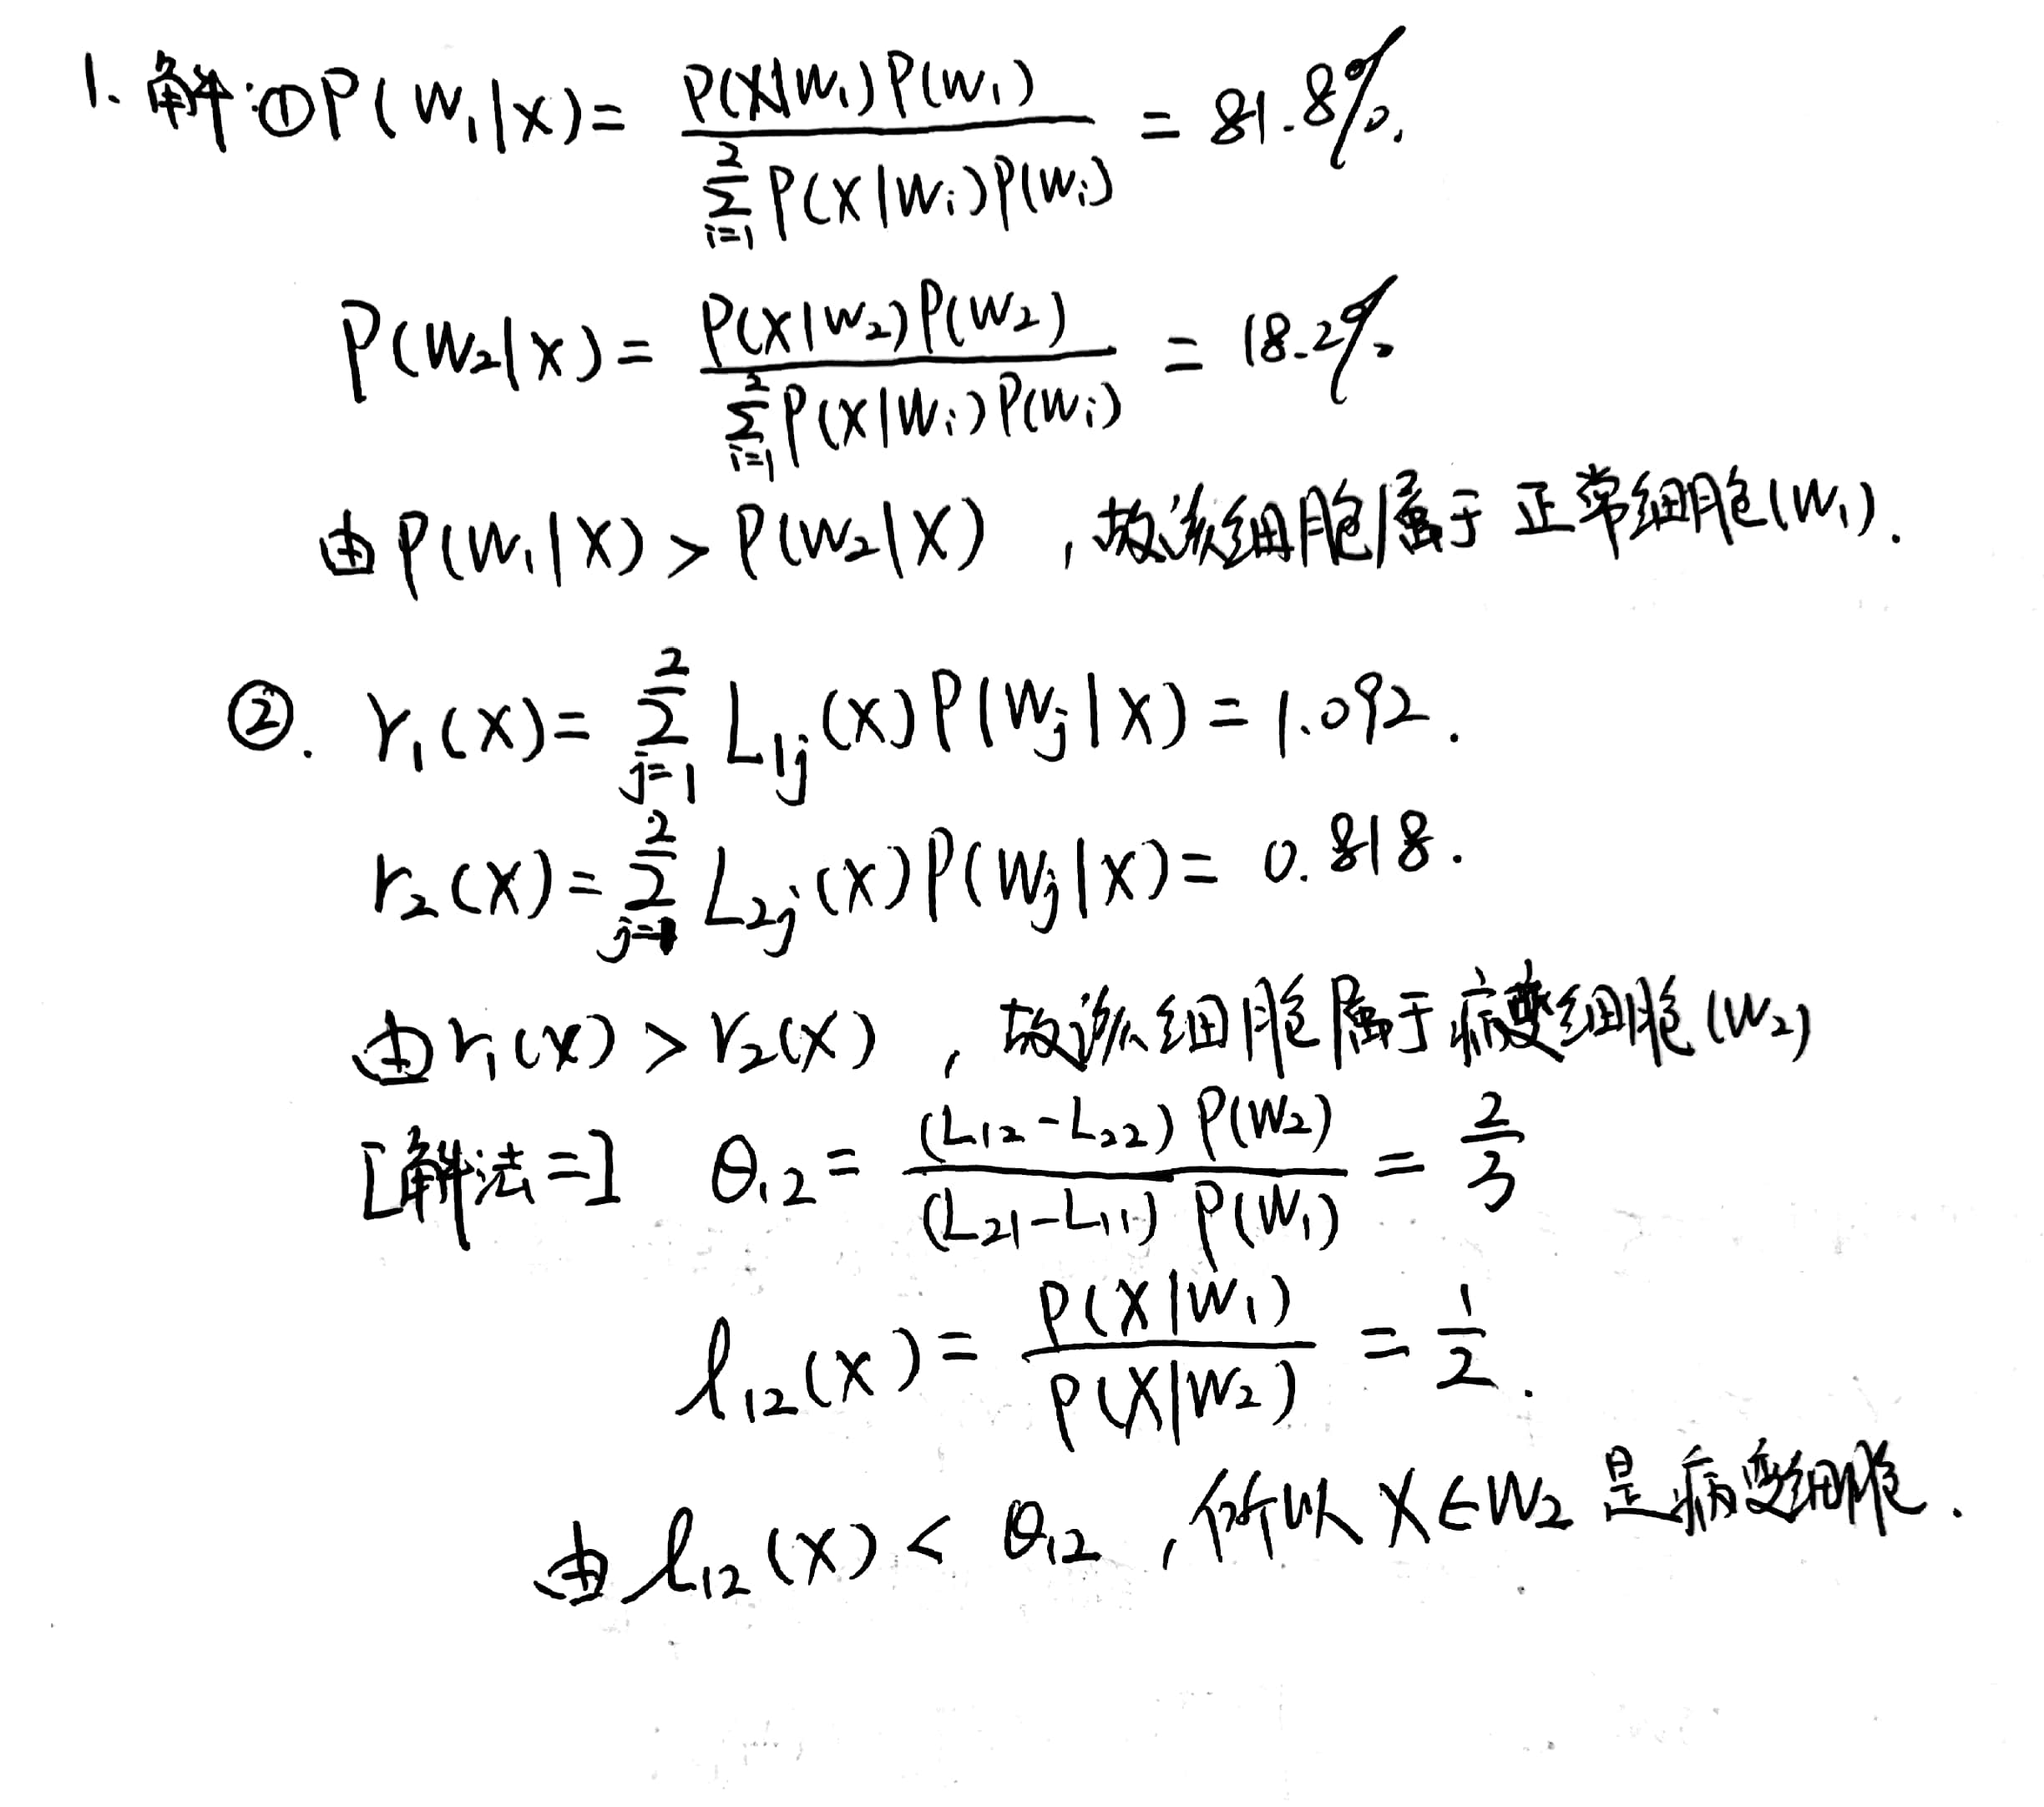 1. 解:①P(W₁|X)= P(X|W₁)P(W₁) / ∑_{i=1}^{2} P(X|Wᵢ)P(Wᵢ) = 81.8%.
P(W₂|X)= P(X|W₂)P(W₂) / ∑_{i=1}^{2} P(X|Wᵢ)P(Wᵢ) = 18.2%
由P(W₁|X) > P(W₂|X) ,故该细胞属于正常细胞(W₁).
②. r₁(X)= ∑_{j=1}^{2} L₁ⱼ(X)P(Wⱼ|X)=1.092.
r₂(X)= ∑_{j=1}^{2} L₂ⱼ(X)P(Wⱼ|X)= 0.818.
由r₁(X) > r₂(X) ,故该细胞属于病变细胞(W₂)
[解法二] θ₁₂= (L₁₂-L₂₂)P(W₂) / (L₂₁-L₁₁)P(W₁) = 2/3
l₁₂(X)= P(X|W₁) / P(X|W₂) = 1/2.
由l₁₂(X) < θ₁₂ ,所以X∈W₂是病变细胞.